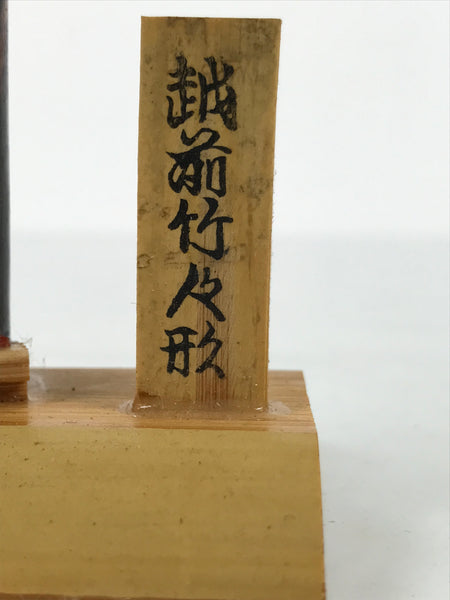 越前竹人形